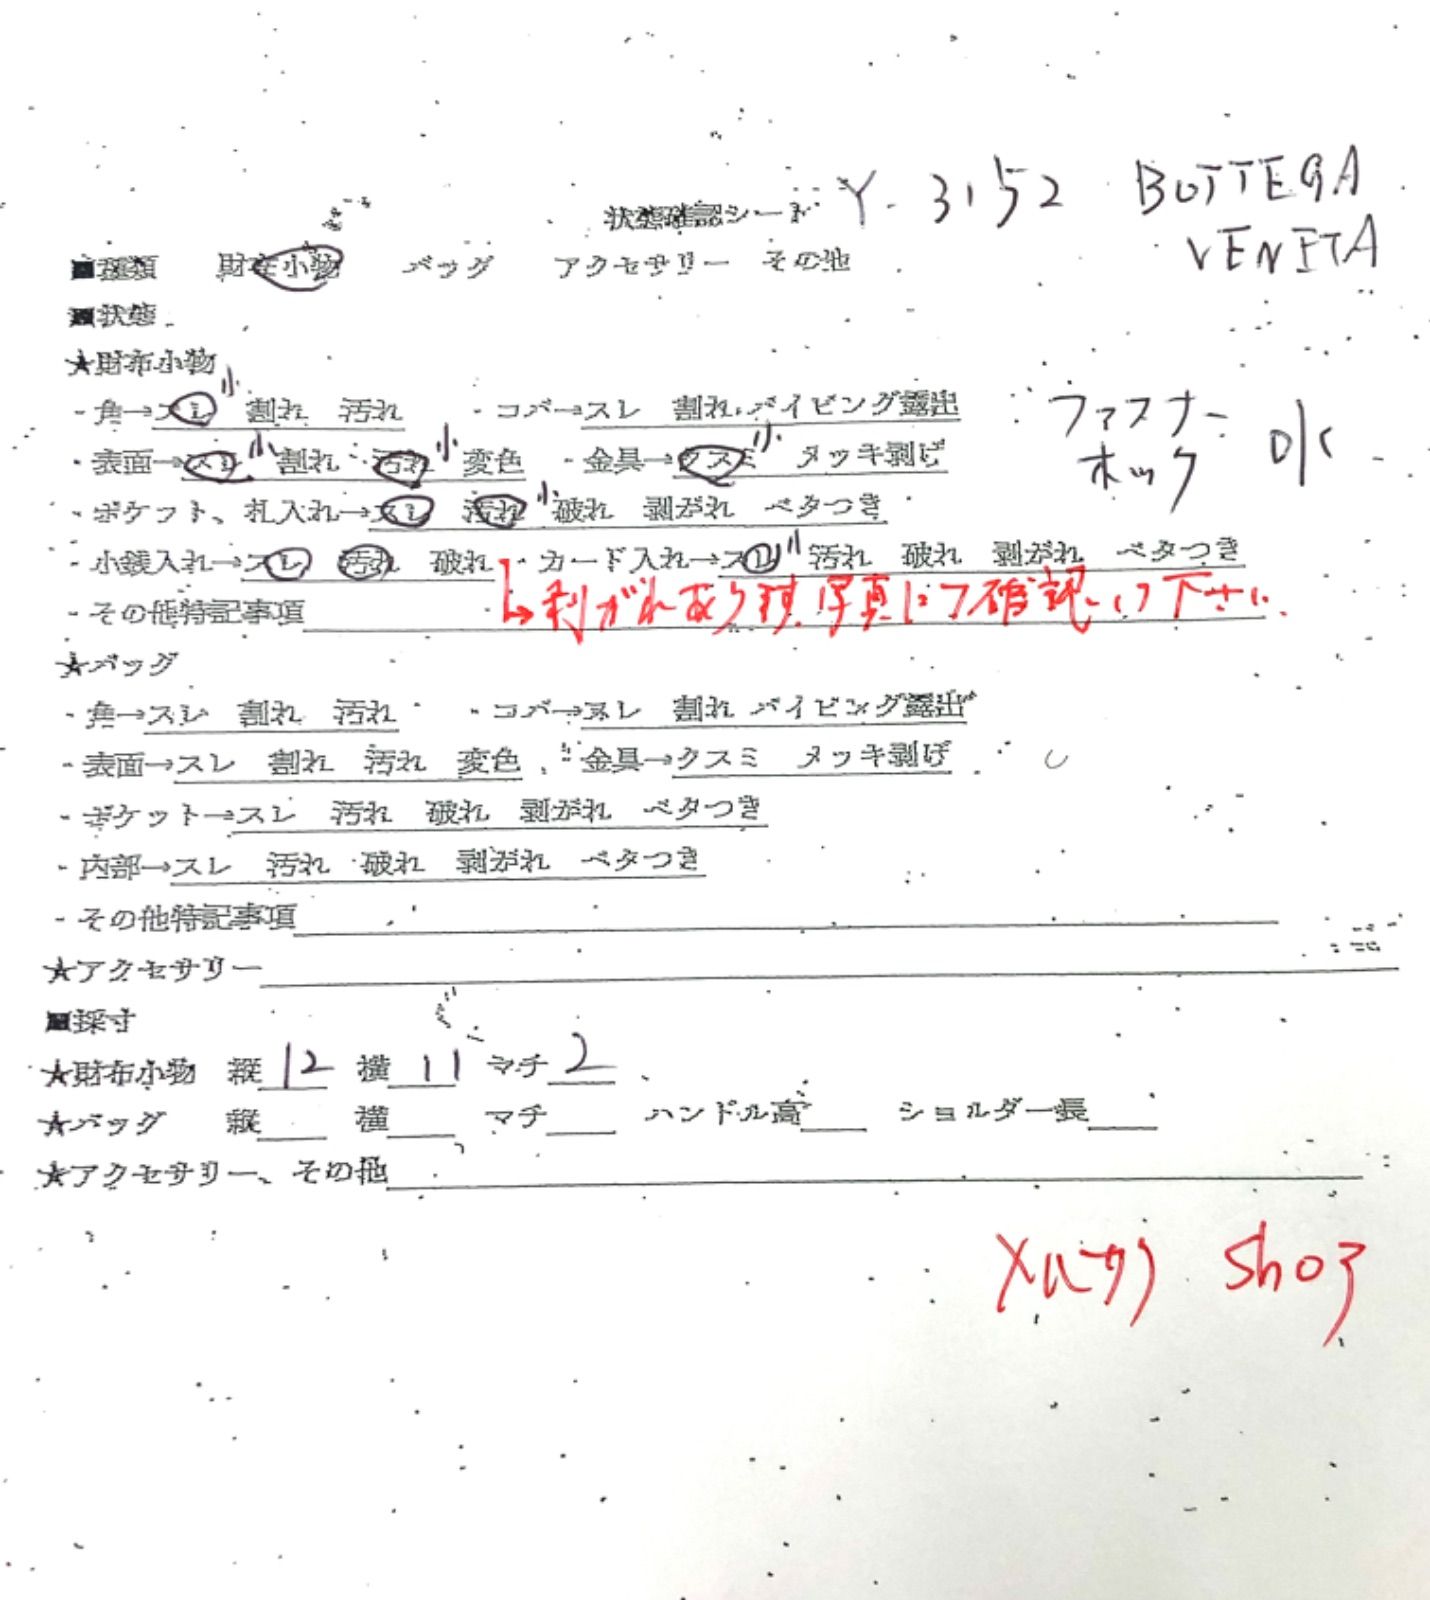 状態確認シート Y-3152 BOTTEGA
VENETA
■種類 財布小物 バッグ アクセサリー その他
■状態
★財布小物
・角→スレ小 割れ 汚れ ・コバ→スレ 割れ パイピング露出
・表面→スレ小 割れ 汚れ小 変色 ・金具→クスミ小 メッキ剥げ
ファスナー
ホック OK
・ポケット、札入れ→スレ 汚れ小 破れ 剥がれ ベタつき
・小銭入れ→スレ 汚れ 破れ ・カード入れ→スレ小 汚れ 破れ 剥がれ ベタつき
・その他特記事項 ↳剥がれあり ます。写真にて確認して下さい。
★バッグ
・角→スレ 割れ 汚れ ・コバ→スレ 割れ パイピング露出
・表面→スレ 割れ 汚れ 変色 ・金具→クスミ メッキ剥げ
・ポケット→スレ 汚れ 破れ 剥がれ ベタつき
・内部→スレ 汚れ 破れ 剥がれ ベタつき
・その他特記事項
★アクセサリー
■採寸
★財布小物 縦12 横11 マチ2
★バッグ 縦 横 マチ ハンドル高 ショルダー長
★アクセサリー、その他